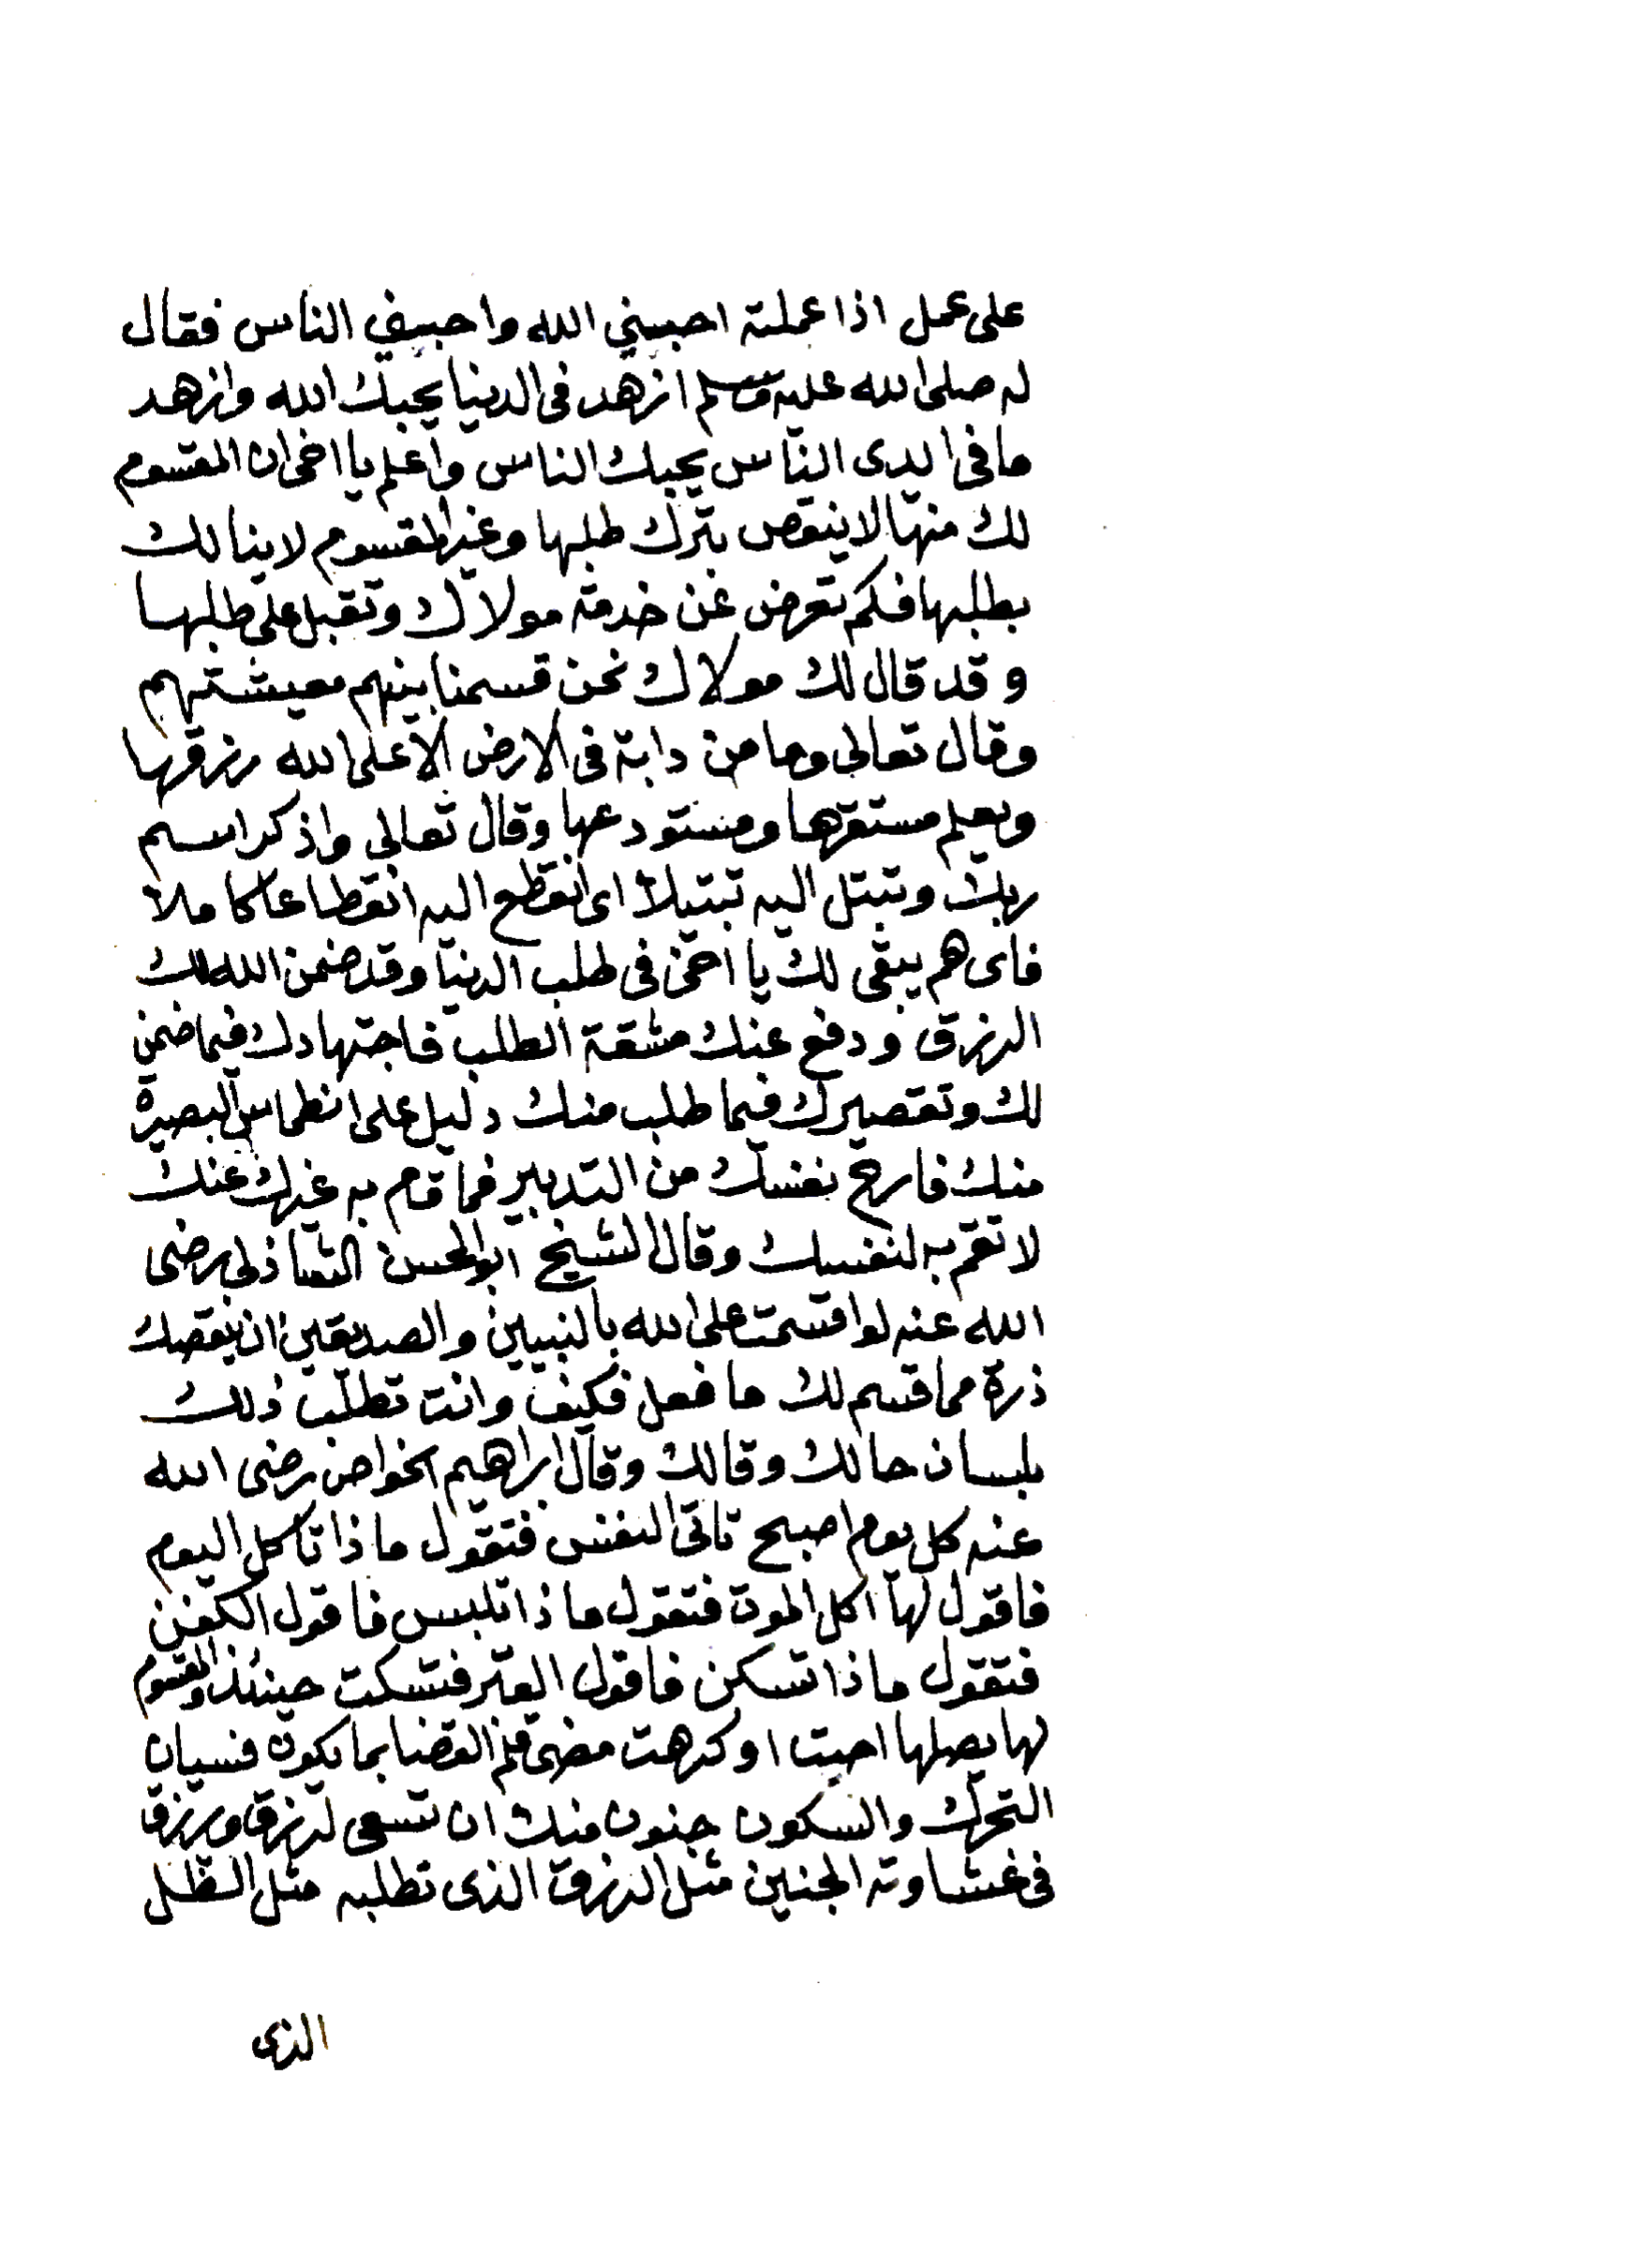 على عمل اذا عملته احببني الله واحببني الناس فقال
له صلى الله عليه وسلم ازهد فى الدنيا يحبك الله وازهد
مافى ايدى الناس يحبك الناس واعلم يا اخى ان المقسوم
لك منها لا ينقص بترك طلبها وغير المقسوم لا ينالك
بطلبها فكم تعرض عن خدمة مولاك وتقبل على طلبها
وقد قال لك مولاك نحن قسمنا بينهم معيشتهم
وقال تعالى وما من دابة فى الارض الا على الله رزقها
ويعلم مستقرها ومستودعها وقال تعالى واذكر اسم
ربك وتبتل اليه تبتيلا اى انقطع اليه انقطاعا كاملا
فاى هم يبقى لك يا اخى فى طلب الدنيا وقد ضمن الله لك
الرزق ودفع عنك مشقة الطلب فاجتهادك فيما ضمن
لك وتقصيرك فيما طلب منك دليل على انطماس البصيرة
منك فارح نفسك من التدبير فما قام به غيرك عنك
لا تقم به لنفسك وقال الشيخ ابو الحسن الشاذلى رضى
الله عنه لو اقسمت على الله بالنبيين والصديقين ان ينقصك
ذرة مما قسم لك ما فعل فكيف وانت تطلب ذلك
بلسان حالك وقالك وقال ابراهيم الخواص رضى الله
عنه كل يوم اصبح تاتى النفس فتقول ماذا تاكل اليوم
فاقول لها اكل الموت فتقول ماذا تلبس فاقول الكفن
فتقول ماذا تسكن فاقول القبر فتسكت حينئذ والمقسوم
لها يصلها احبت او كرهت مضى قلم القضا بما يكون فسيان
التحرك والسكون جنون منك ان تسعى لرزق ويرزق
فى غشاوته الجنين مثل الرزق الذى تطلبه مثل الظل
الذى